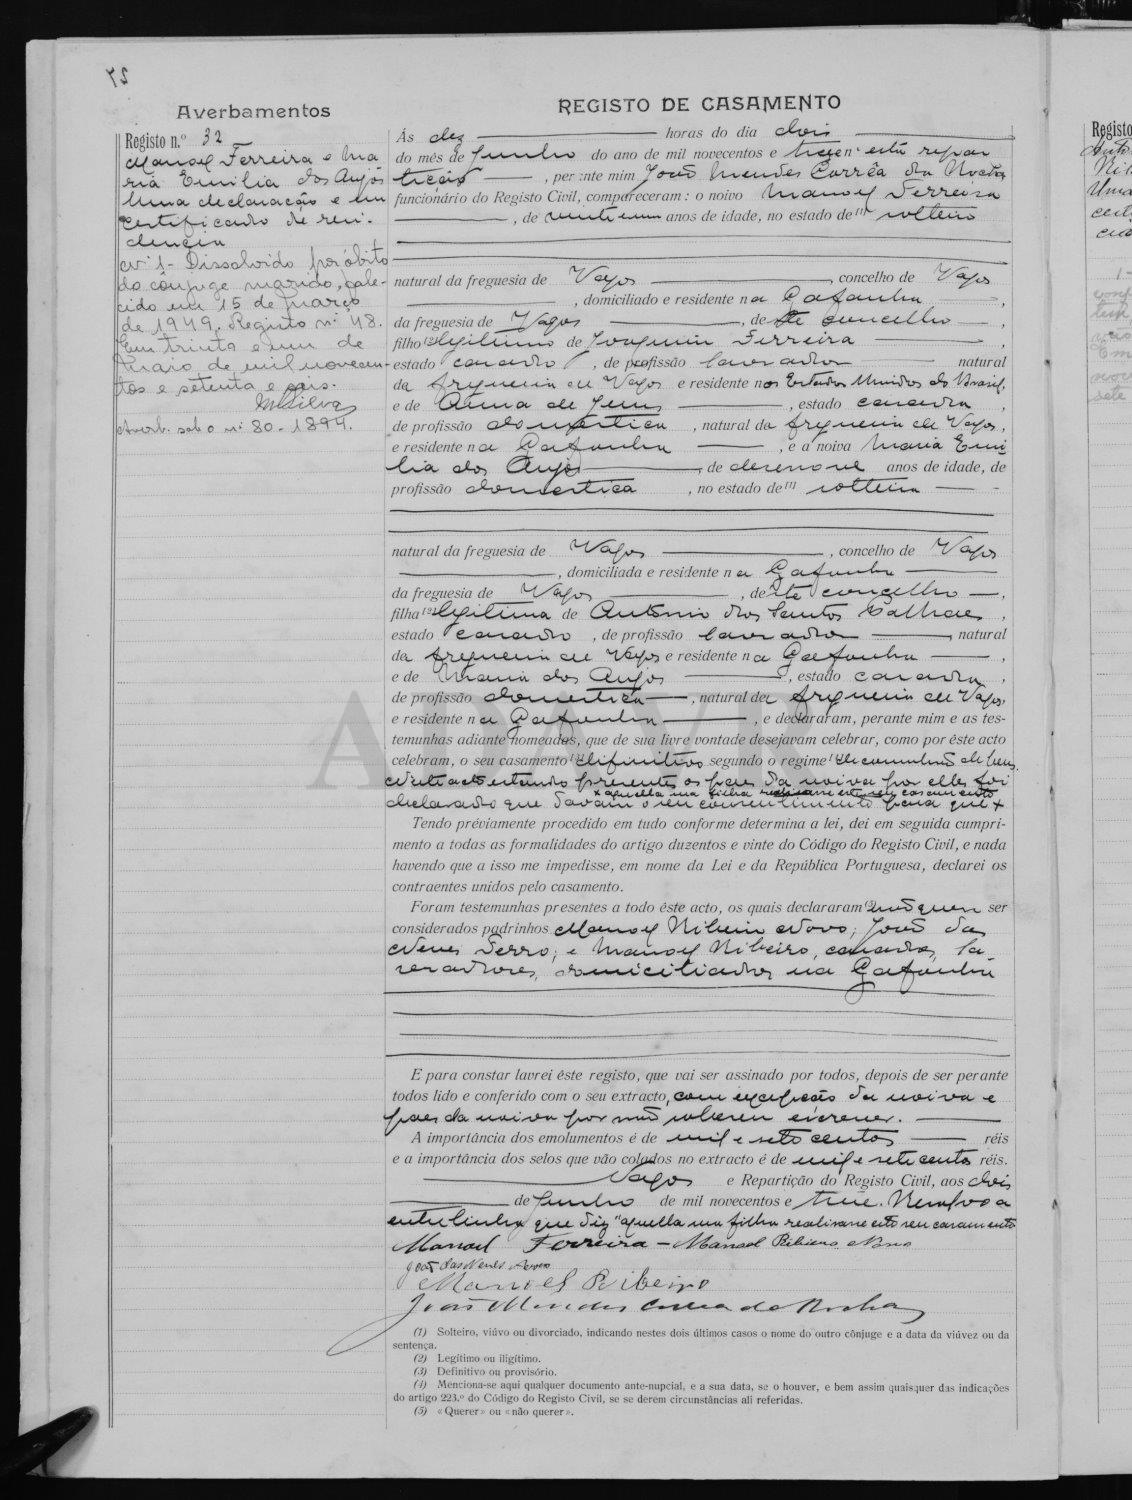 27
Averbamentos
Registo n.º 32
Manoel Ferreira e Ma
ria Emilia dos Anjos
Uma declaração e um
certificado de resi-
dencia
Av. 1 - Dissolvido por óbito
do cônjuge marido, fale-
cido em 15 de março
de 1949. Registo nº 48.
Em trinta e um de
Maio de mil novecen-
tos e setenta e seis.
MSilva
Averb. sob o nº 80-1894.
REGISTO DE CASAMENTO
Ás dez horas do dia dois
do mês de Junho do ano de mil novecentos e treze n'esta repar
tição, perante mim João Mendes Corrêa da Rocha
funcionário do Registo Civil, compareceram: o noivo Manoel Ferreira
, de vinte e um anos de idade, no estado de (1) solteiro
natural da freguesia de Vagos concelho de Vagos
, domiciliado e residente na Gafanha,
da freguesia de Vagos, deste concelho,
filho (2) legitimo de Joaquim Ferreira,
estado casado, de profissão lavrador natural
da freguesia de Vagos e residente nos Estados Unidos do Brasil,
e de Anna de Jesus, estado casada,
de profissão domestica, natural da freguesia de Vagos,
e residente na Gafanha, e a noiva Maria Emi
lia dos Anjos, de desenove anos de idade, de
profissão domestica, no estado de (1) solteira
natural da freguesia de Vagos, concelho de Vagos
, domiciliada e residente na Gafanha
da freguesia de Vagos, deste concelho,
filha (2) legitima de Antonio dos Santos Calhae,
estado casado, de profissão lavrador, natural
da freguesia de Vagos e residente na Gafanha,
e de Maria dos Anjos, estado casada,
de profissão domestica, natural da freguesia de Vagos,
e residente na Gafanha, e declararam, perante mim e as tes-
temunhas adiante nomeadas, que de sua livre vontade desejavam celebrar, como por êste acto
celebram, o seu casamento (3) difinitivo segundo o regime (4) de comunhão de bens.
Neste acto estando presentes os paes da noiva por elles foi
x aquella sua filha realisasse este seu casamento
declarado que davam o seu consentimento para que x
Tendo préviamente procedido em tudo conforme determina a lei, dei em seguida cumpri-
mento a todas as formalidades do artigo duzentos e vinte do Código do Registo Civil, e nada
havendo que a isso me impedisse, em nome da Lei e da República Portuguesa, declarei os
contraentes unidos pelo casamento.
Foram testemunhas presentes a todo êste acto, os quais declararam (5) não querer ser
considerados padrinhos Manoel Ribeiro Novo, João das
Neves Ferro, e Manoel Ribeiro, casados, la-
vradores, domiciliados na Gafanha
E para constar lavrei êste registo, que vai ser assinado por todos, depois de ser perante
todos lido e conferido com o seu extracto, com excepção da noiva e
paes da noiva por não saberem escrever.
A importância dos emolumentos é de mil e setecentos réis
e a importância dos selos que vão colados no extracto é de mil e setecentos réis.
Vagos e Repartição do Registo Civil, aos dois
de Junho de mil novecentos e treze. Resalvo a
entrelinha que diz "aquella sua filha realisasse este seu casamento
Manoel Ferreira - Manoel Ribeiro Novo
João das Neves Ferro
Manoel Ribeiro
João Mendes Correa da Rocha
(1) Solteiro, viúvo ou divorciado, indicando nestes dois últimos casos o nome do outro cônjuge e a data da viúvez ou da
sentença.
(2) Legítimo ou iligítimo.
(3) Definitivo ou provisório.
(4) Menciona-se aqui qualquer documento ante-nupcial, e a sua data, se o houver, e bem assim quaisquer das indicações
do artigo 223.º do Código do Registo Civil, se se derem circunstâncias ali referidas.
(5) «Querer» ou «não querer».
Registo